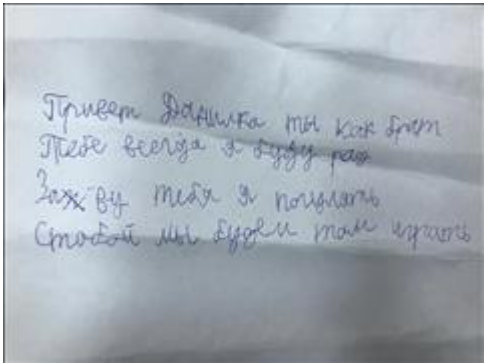 Привет Данилка ты как брат
Тебе всегда я буду рад
Зажву тебя я погулять
Стобой мы будем там играть